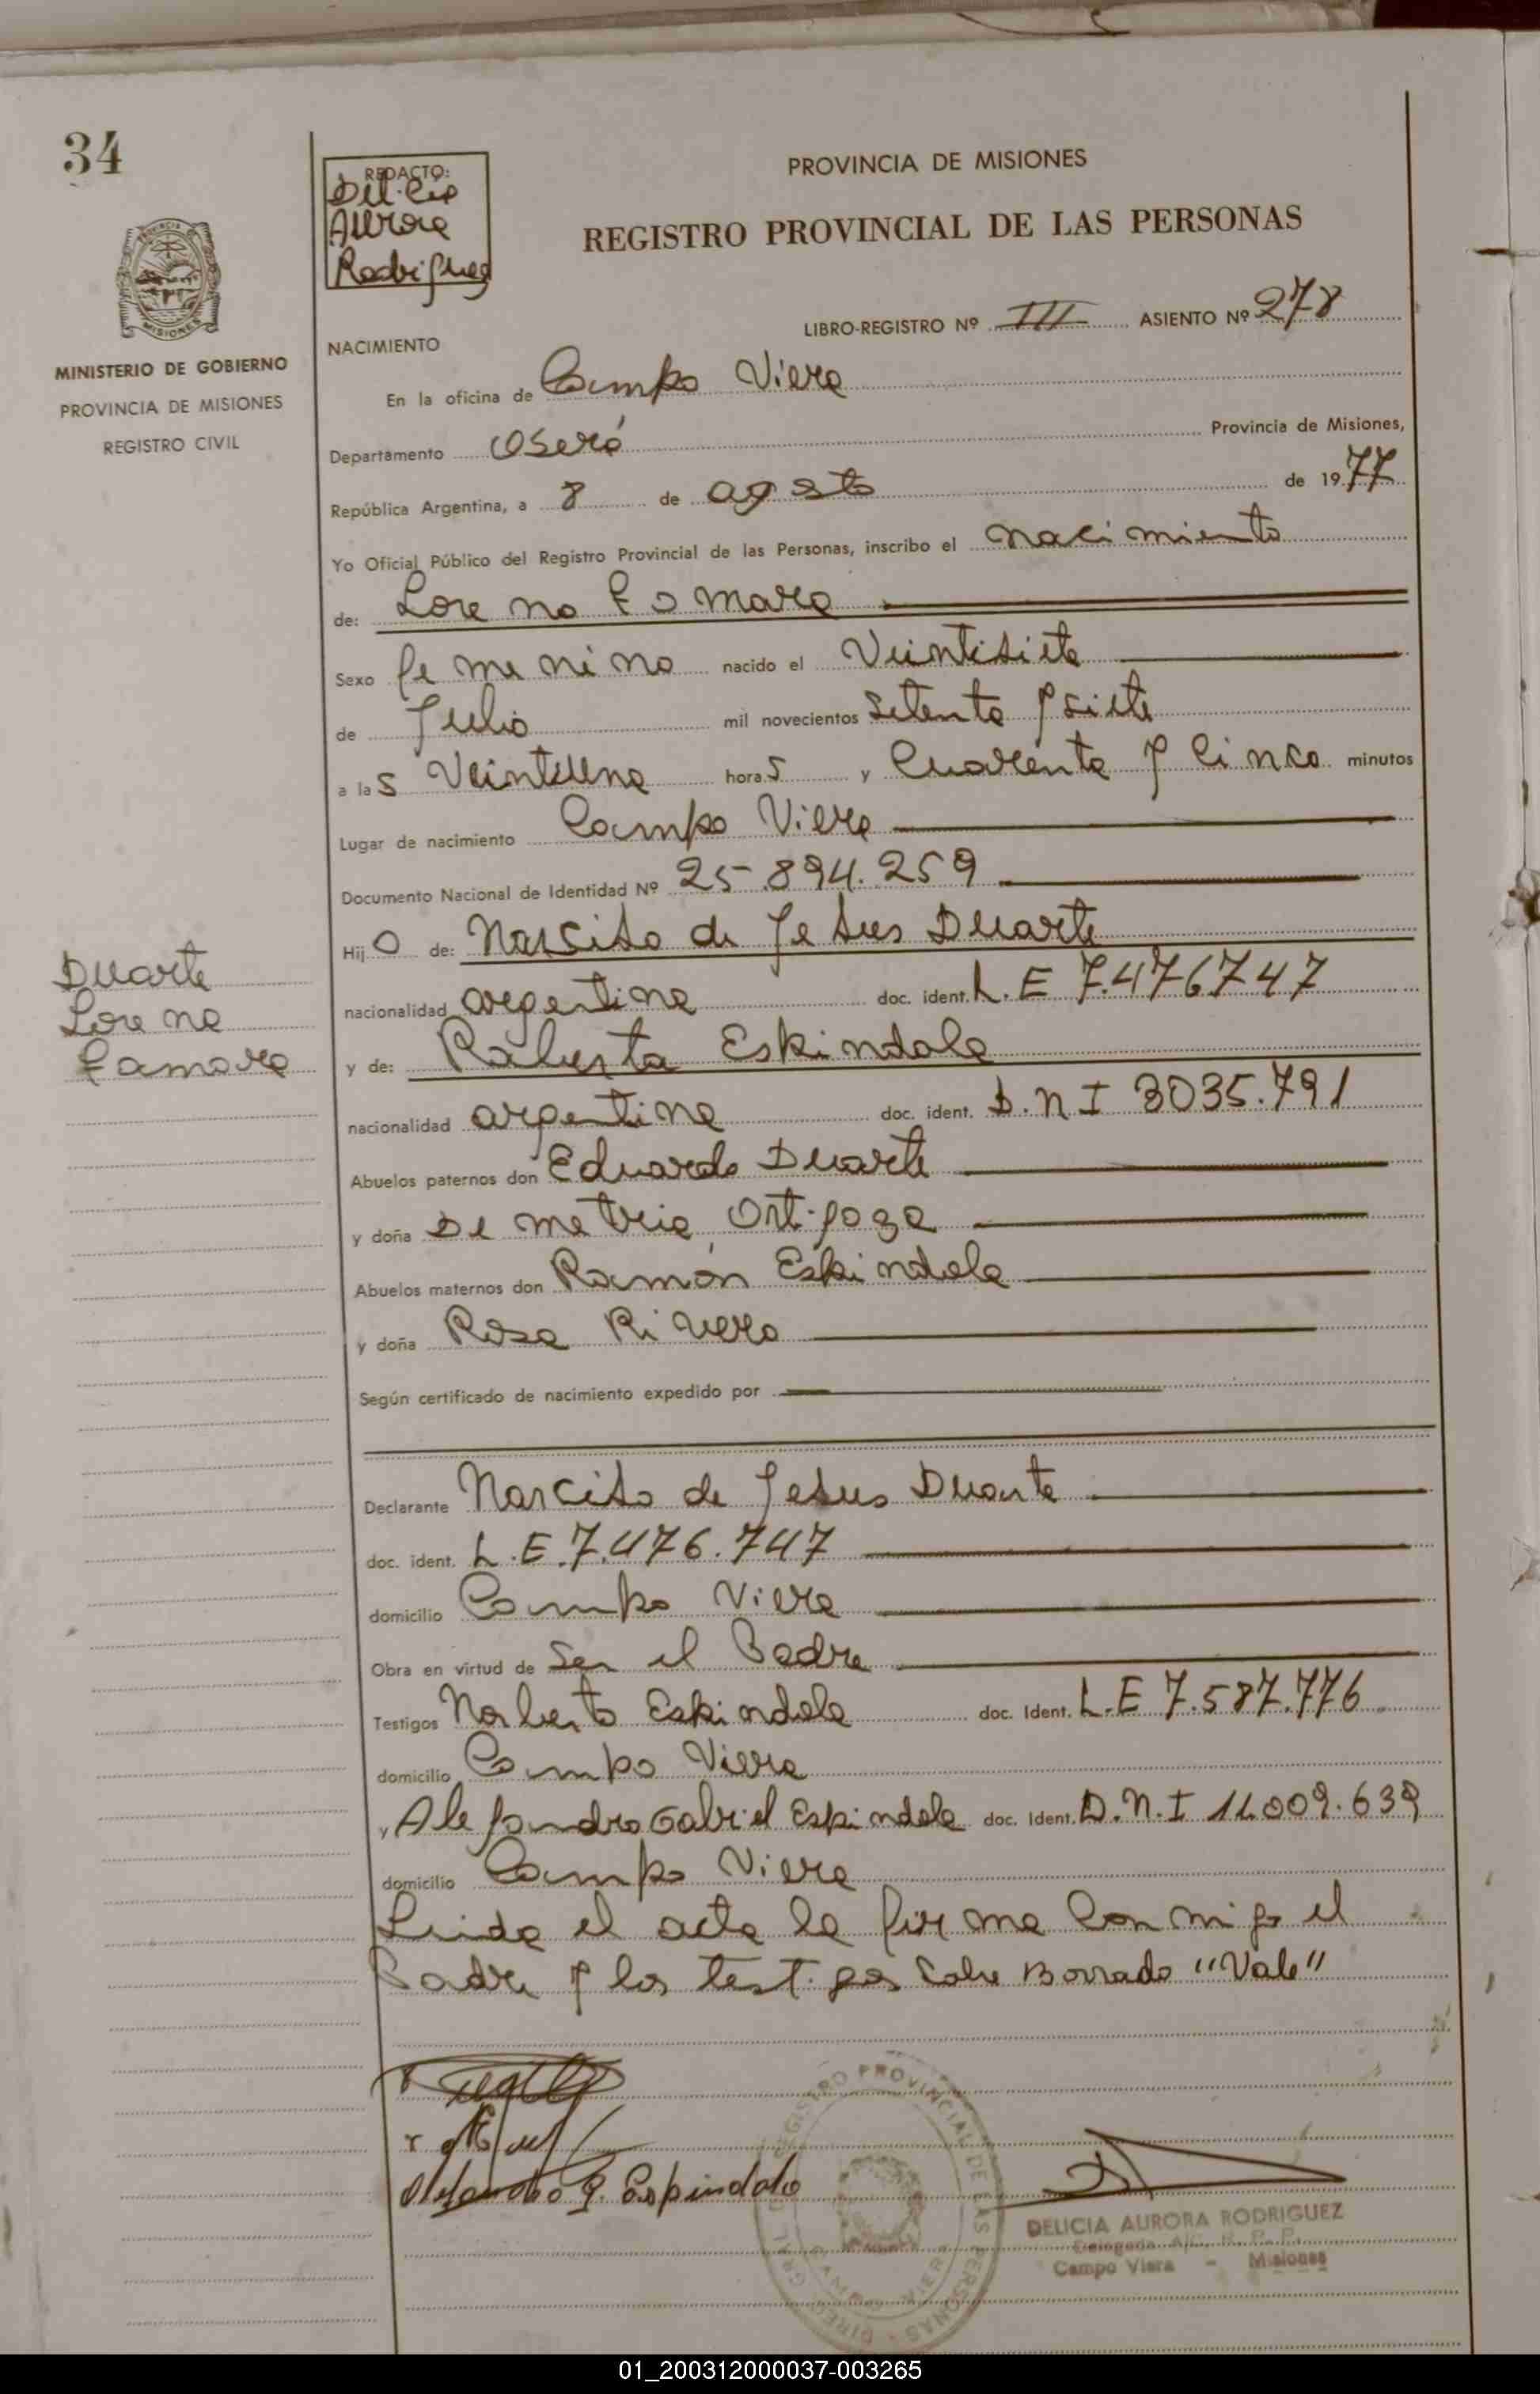 34
REDACTO:
Delicia
Aurora
Rodriguez
PROVINCIA DE MISIONES
REGISTRO PROVINCIAL DE LAS PERSONAS
MISIONES
MINISTERIO DE GOBIERNO
PROVINCIA DE MISIONES
REGISTRO CIVIL
LIBRO-REGISTRO Nº III ASIENTO Nº 278
NACIMIENTO
En la oficina de Campo Viera
Departamento Oberá Provincia de Misiones,
República Argentina, a 8 de agosto de 1977
Yo Oficial Público del Registro Provincial de las Personas, inscribo el nacimiento
de: Lorena
Sexo femenino nacido el Veintisiete
de Julio mil novecientos setenta y siete
a las Veintiuna horas y Cuarenta y Cinco minutos
Lugar de nacimiento Campo Viera
Documento Nacional de Identidad Nº 25.894.259
Hijo de: Narciso de Jesus Duarte
nacionalidad argentina doc. ident. L.E 7.476747
Duarte
Lorena
y de: Roberta Eskindola
nacionalidad argentina doc. ident. D.N I 3035.791
Abuelos paternos don Eduardo Duarte
y doña Demetria Ortigoza
Abuelos maternos don Ramón Eskindola
y doña Rosa Rivero
Según certificado de nacimiento expedido por
Declarante Narciso de Jesus Duarte
doc. ident. L.E.7.476.747
domicilio Campo Viera
Obra en virtud de ser el Padre
Testigos Norberto Eskindola doc. Ident. L.E 7.587.776
domicilio Campo Viera
y Alejandro Gabriel Espindola doc. Ident. D.N.I 11.009.639
domicilio Campo Viera
Leida el acta la firma conmigo el
Padre y los testigos sobre Borrado "Vale"
Alejandro G. Espindola
REGISTRO PROVINCIAL DE LAS PERSONAS
DIRECC GRAL
CAMPO VIERA
DELICIA AURORA RODRIGUEZ
Delegada A/C. R. P. P.
Campo Viera - Misiones
01_200312000037-003265